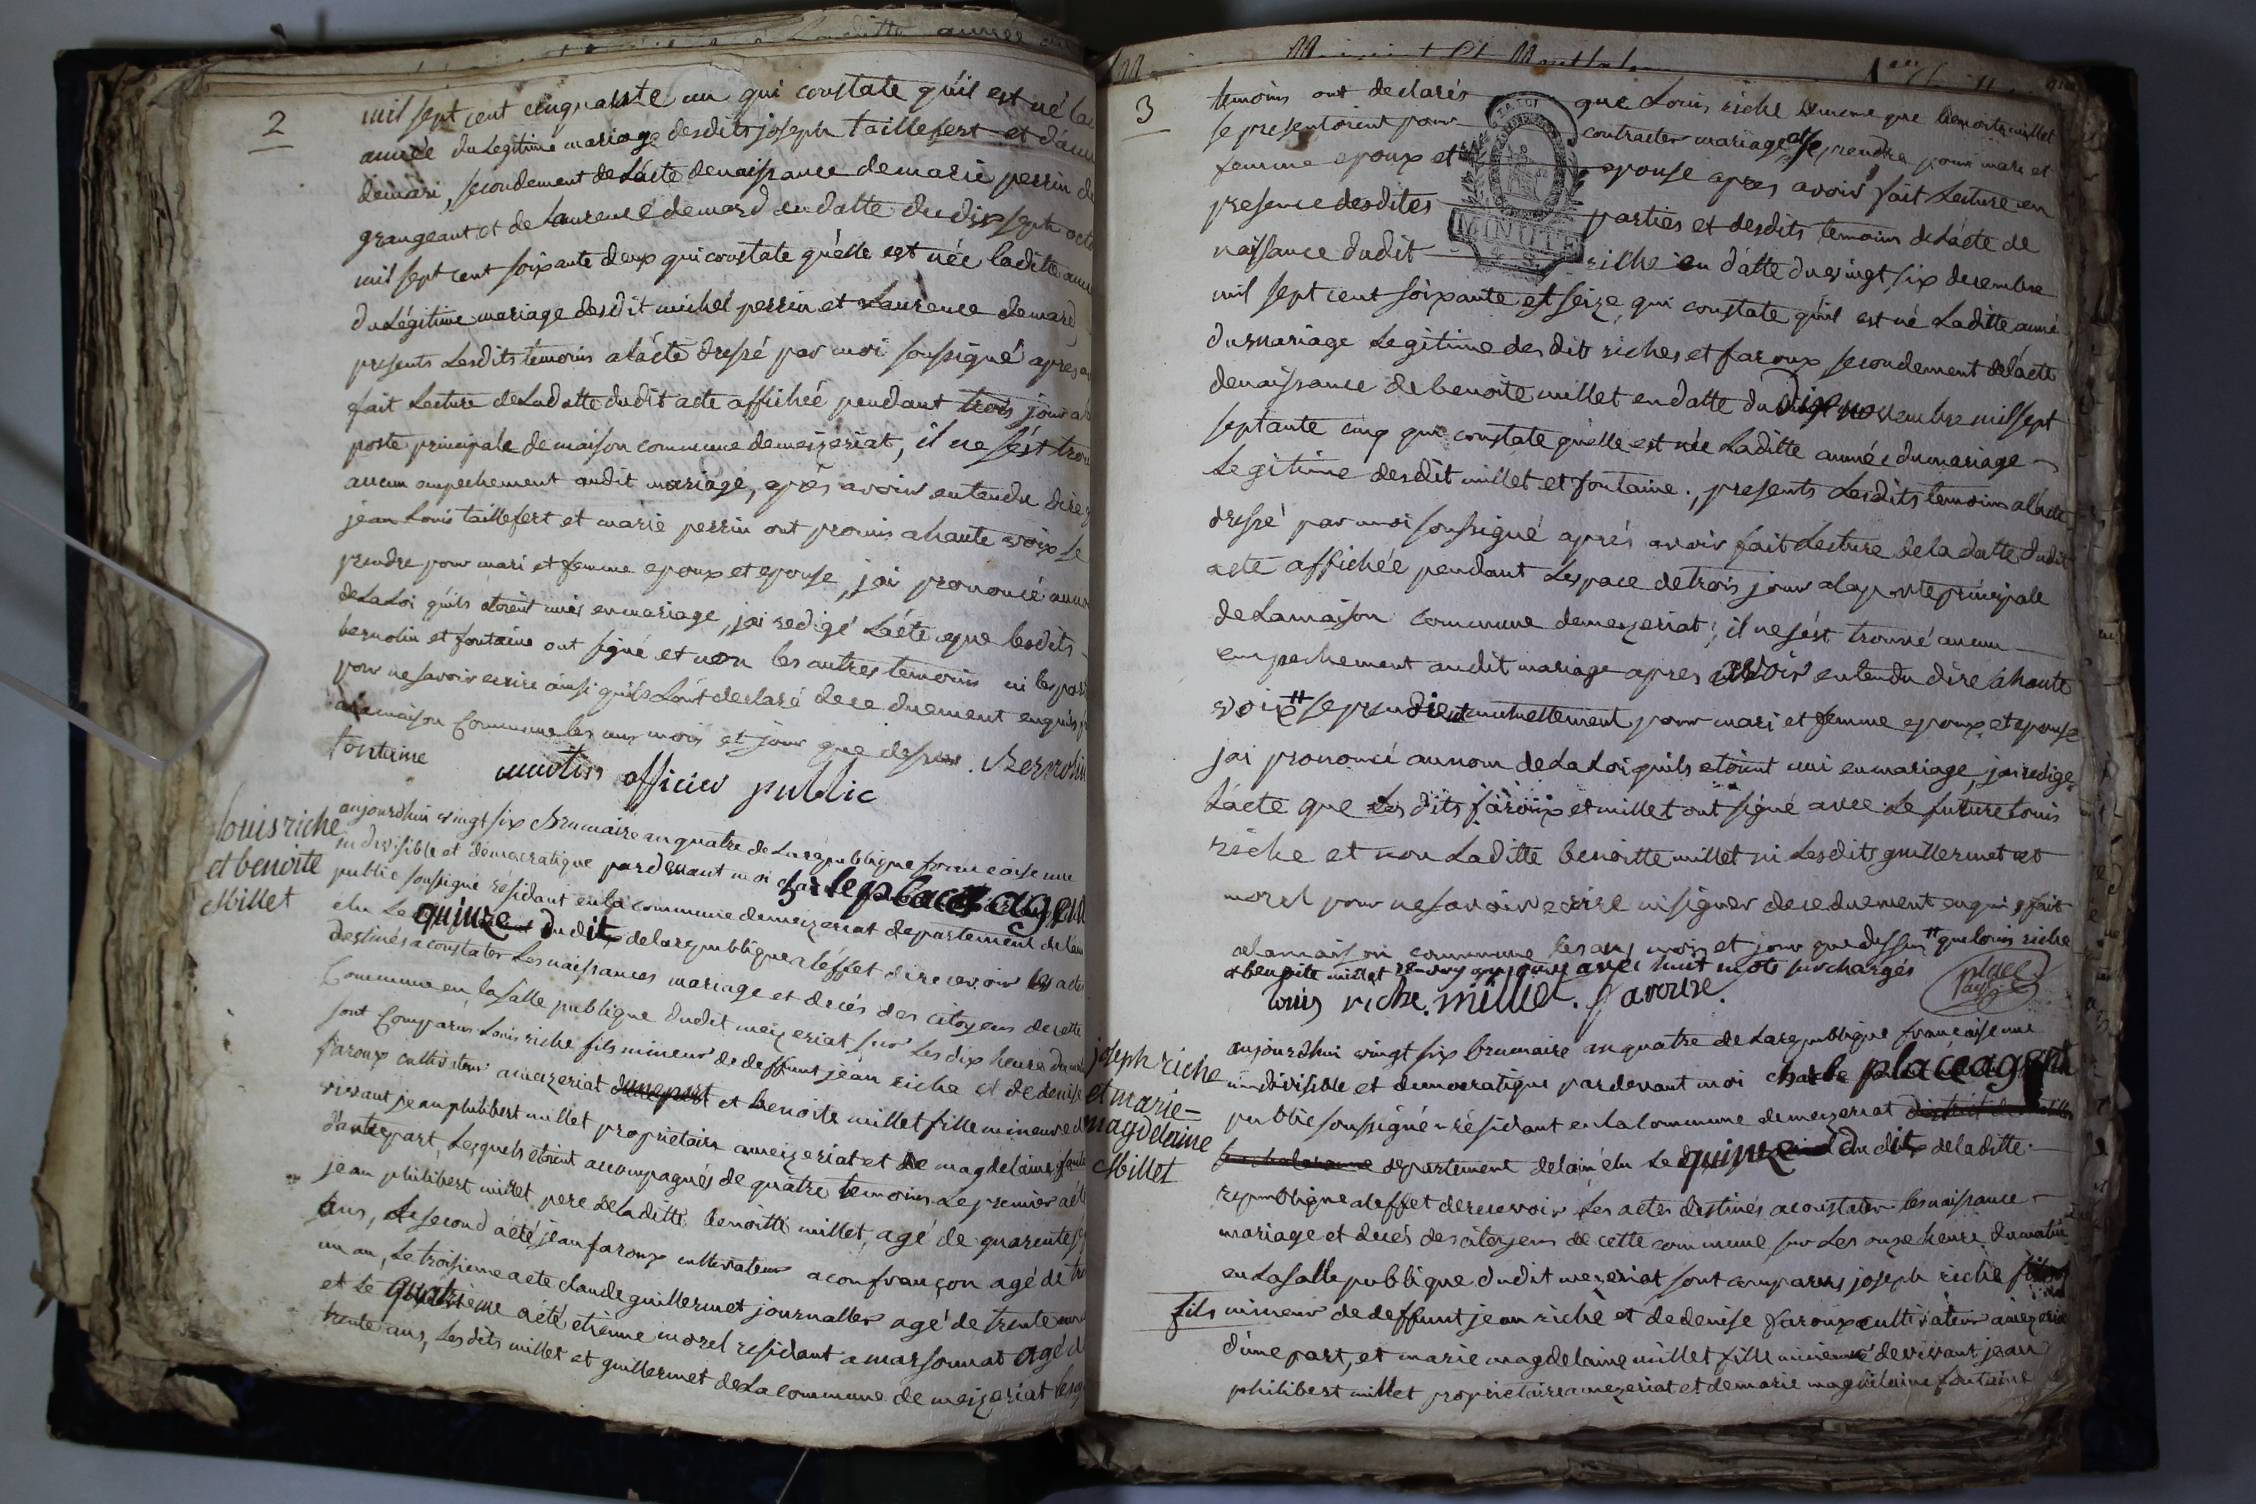 2
mil sept cent cinquante un qui constate qu'il est né la
année du légitime mariage desdits joseph taillefert et d'anne
demari, secondement de l'acte denaissance demarie perrin de
grangeant et de Laurence demard en datte du dix sept octo
mil sept cent soixante deux qui constate qu'elle est née laditte anné
du Légitime mariage desdit michel perrin et Laurence demard
presents Lesdits temoins a l'acte dressé par moi soussigné apres a
fait Lecture de Ladatte dudit acte affichéé pendant trois jour a la
porte principale de maison commune demeizeriat, il ne s'ést trou
aucun empechement audit mariage, aprés avoir entendu dire q
jean Louis taillefert et marie perrin ont promis a haute voix se
prendre pour mari et femme epoux et epouse, j'ai prononcé au no
de La Loi qu'ils étoient unis en mariage, j'ai redigé L'acte que lesdits
bernolin et fontaine ont signé et non les autres temoins ni les part
pour ne savoir ecrire ainsi qu'ils L'ont declaré de ce duement enquis f
a la maison Commune les ans mois et jour que dessus. Bernolin
fontaine
officier public
louis riche
et benoite
Millet
aujourdhui vingt six Brumaire an quatre de La republique francaise une
indivisible et démocratique pardevant moi leplace agent
public soussigné résidant en la commune demeizeriat departement de lain
elu Le quinze dudit de la republique a l'éffet de recevoir les actes
destinés a constater Les naissances mariage et decés des citoyens de cette
Commune en la salle publique dudit meizeriat sur Les dix heures du matin
sont Comparus Louis riche fils mineur de deffunt jean riche et de denise
faroux cultivateur a mezeriat dune part et benoite millet fille mineure de
vivant jean philibert millet propriétaire ameizeriat et de magdelaine fontai
d'autre part, Lesquels etoient accompagnés de quatre temoins Le premier a été
jean philibert millet pere de laditte benoitte millet, agé de quarente
ans, Le second a été jean faroux cultivateur a confrançon agé de tre
un an, Le troisieme a ete claude guillermet journallier agé de trente
et Le quatrième a été etienne morel residant a marsonnat agé de
trente ans, Les dits millet et guillermet de La commune de meizeriat
3
temoins ont declarés que Louis riche de meme que benoite millet
se presentoient pour contracter mariage et se prendre pour mari et
femme epoux et epouse apres avoir fait Lecture en
presence desdites parties et desdits temoins de L'acte de
naissance dudit riche en datte du vingt six decembre
MINUTE
mil sept cent soixante et seize, qui constate qu'il est né Laditte anné
du mariage Legitime des dits riches et faroux secondement de l'acte
denaissance de benoite millet en datte du dix novembre mil sept
septante cinq qui constate qu'elle est née Laditte année du mariage
Legitime desdit millet et fontaine., presents Lesdits temoins a l'acte
dressé par moi soussigné aprés avoir fait Lecture de la datte dudit
acte affichée pendant L'espace de trois jour a la porte principale
de La maison commune demezeriat, il ne s'ést trouvé aucun
empechement audit mariage apres avoir entendu dire a haute
voix # se prendre mutuellement pour mari et femme epoux et epouse
j'ai prononcé au nom de La Loi qu'ils etoient uni en mariage, j'ai redigé
L'acte que Les dits faroux et millet ont signé avec Le future Louis
riche et non Laditte benoitte millet ni Lesdits guillermet et
morel pour ne savoir ecrire ni signer de ce duement enquis, fait
a la maison commune les ans mois et jour que dessus # que louis riche
et benoite millet renvoy approuvé avec huit mots surchargés
louis riche. millet. farouxe. place
agt
joseph riche
et marie-
magdelaine
Millet
aujourdhui vingt six brumaire an quatre de La republique francaise une
indivisible et democratique pardevant moi place agent
public soussigné résidant en la Commune demezeriat
departement de lain elu Le quinze dudit de laditte
republique a l'effet de recevoir Les actes destinés a constater les naissance
mariage et decés des citoyens de cette commune sur Les onze heure du matin
en La salle publique dudit mezeriat sont comparus joseph riche
fils mineur de deffunt jean riche et de denise faroux cultivateur a mezeriat
d'une part, et marie magdelaine millet fille mineure de vivant jean
philibert millet propriétaire a mezeriat et de marie magdelaine fontaine